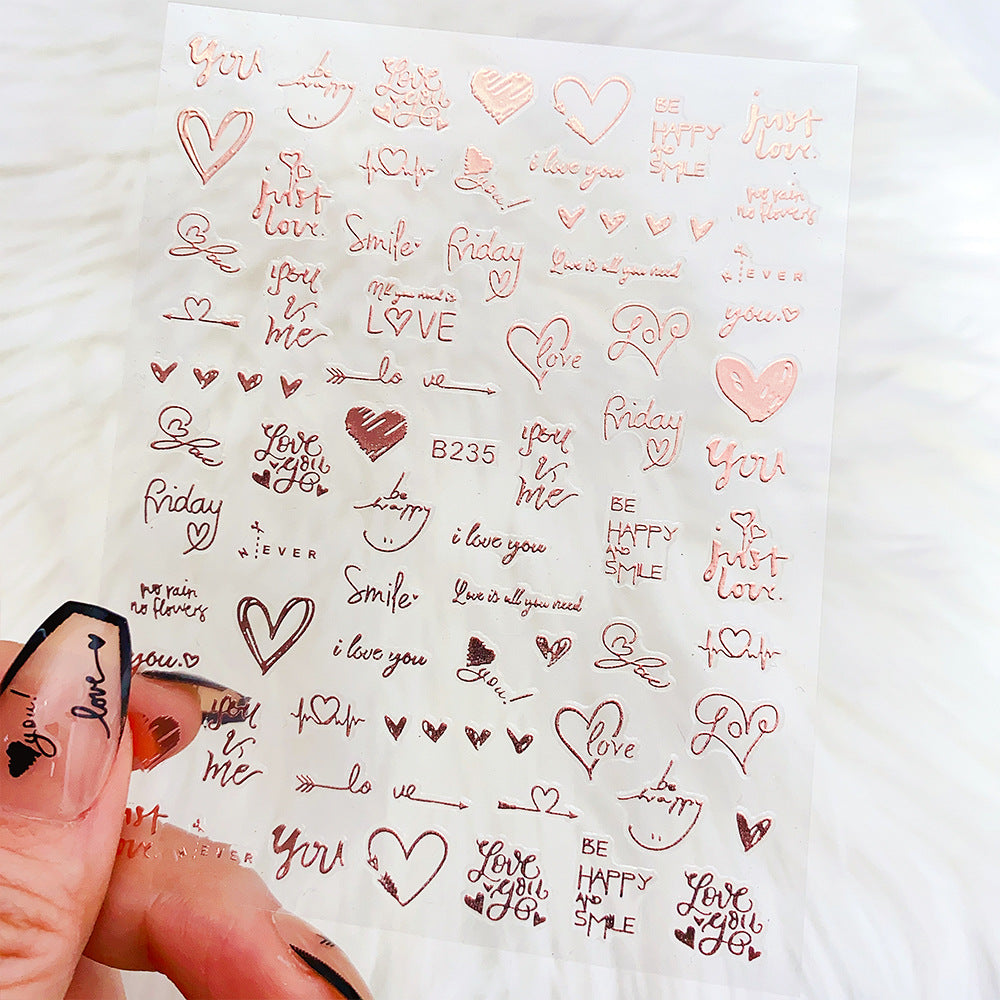 you
be
happy
Love
you
BE
HAPPY
AND
SMILE
just
love.
just
love.
you!
i love you
no rain
no flowers
Love
Smile
friday
Love is all you need
NEVER
you
&
me
All you need is
LOVE
love
Love
you.
lo ve
Love
Love
you
B235
you
&
me
friday
you
friday
NEVER
be
happy
i love you
BE
HAPPY
AND
SMILE
just
love.
no rain
no flowers
Smile
Love is all you need
you.
i love you
you!
Love
you
&
me
love
Love
you!
love
lo ve
be
happy
just
love.
NEVER
you
Love
you
BE
HAPPY
AND
SMILE
Love
you